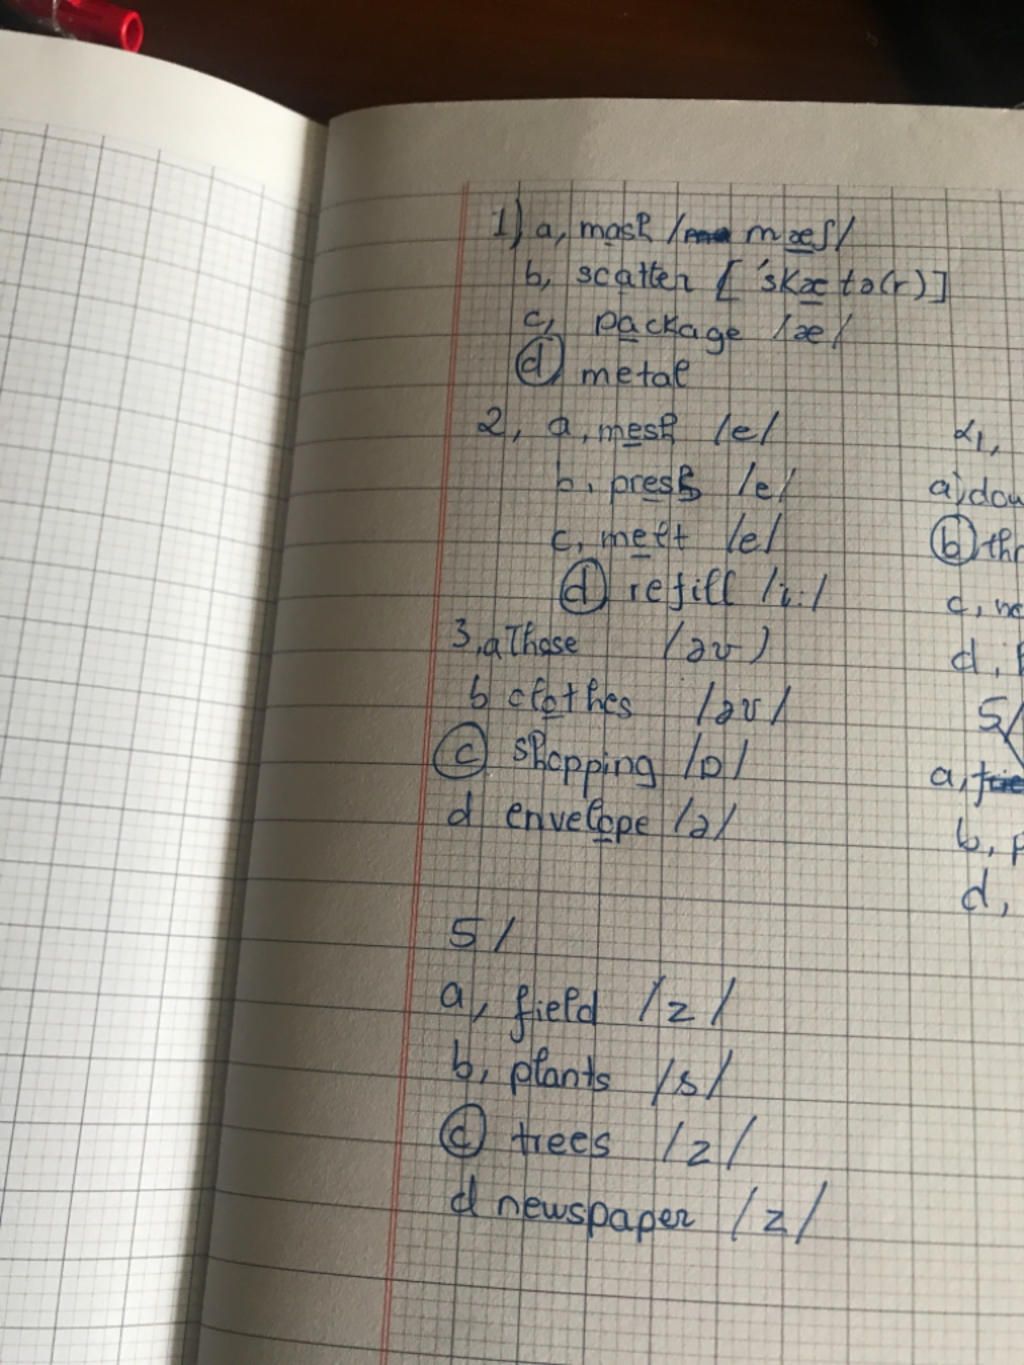 1) a, mash / mæʃ/
b, scatter ['skætə(r)]
c, package /æ/
d metal
2, a, mesh /e/
b, press /e/
c, melt /e/
d refill /i:/
3, a Those /əʊ)
b clothes /əʊ/
c shopping /ɒ/
d envelope /ə/
5/
a, field /z/
b, plants /s/
c trees /z/
d newspaper /z/
a, dou
b thr
c,
d,
5/
a,
b, p
d,